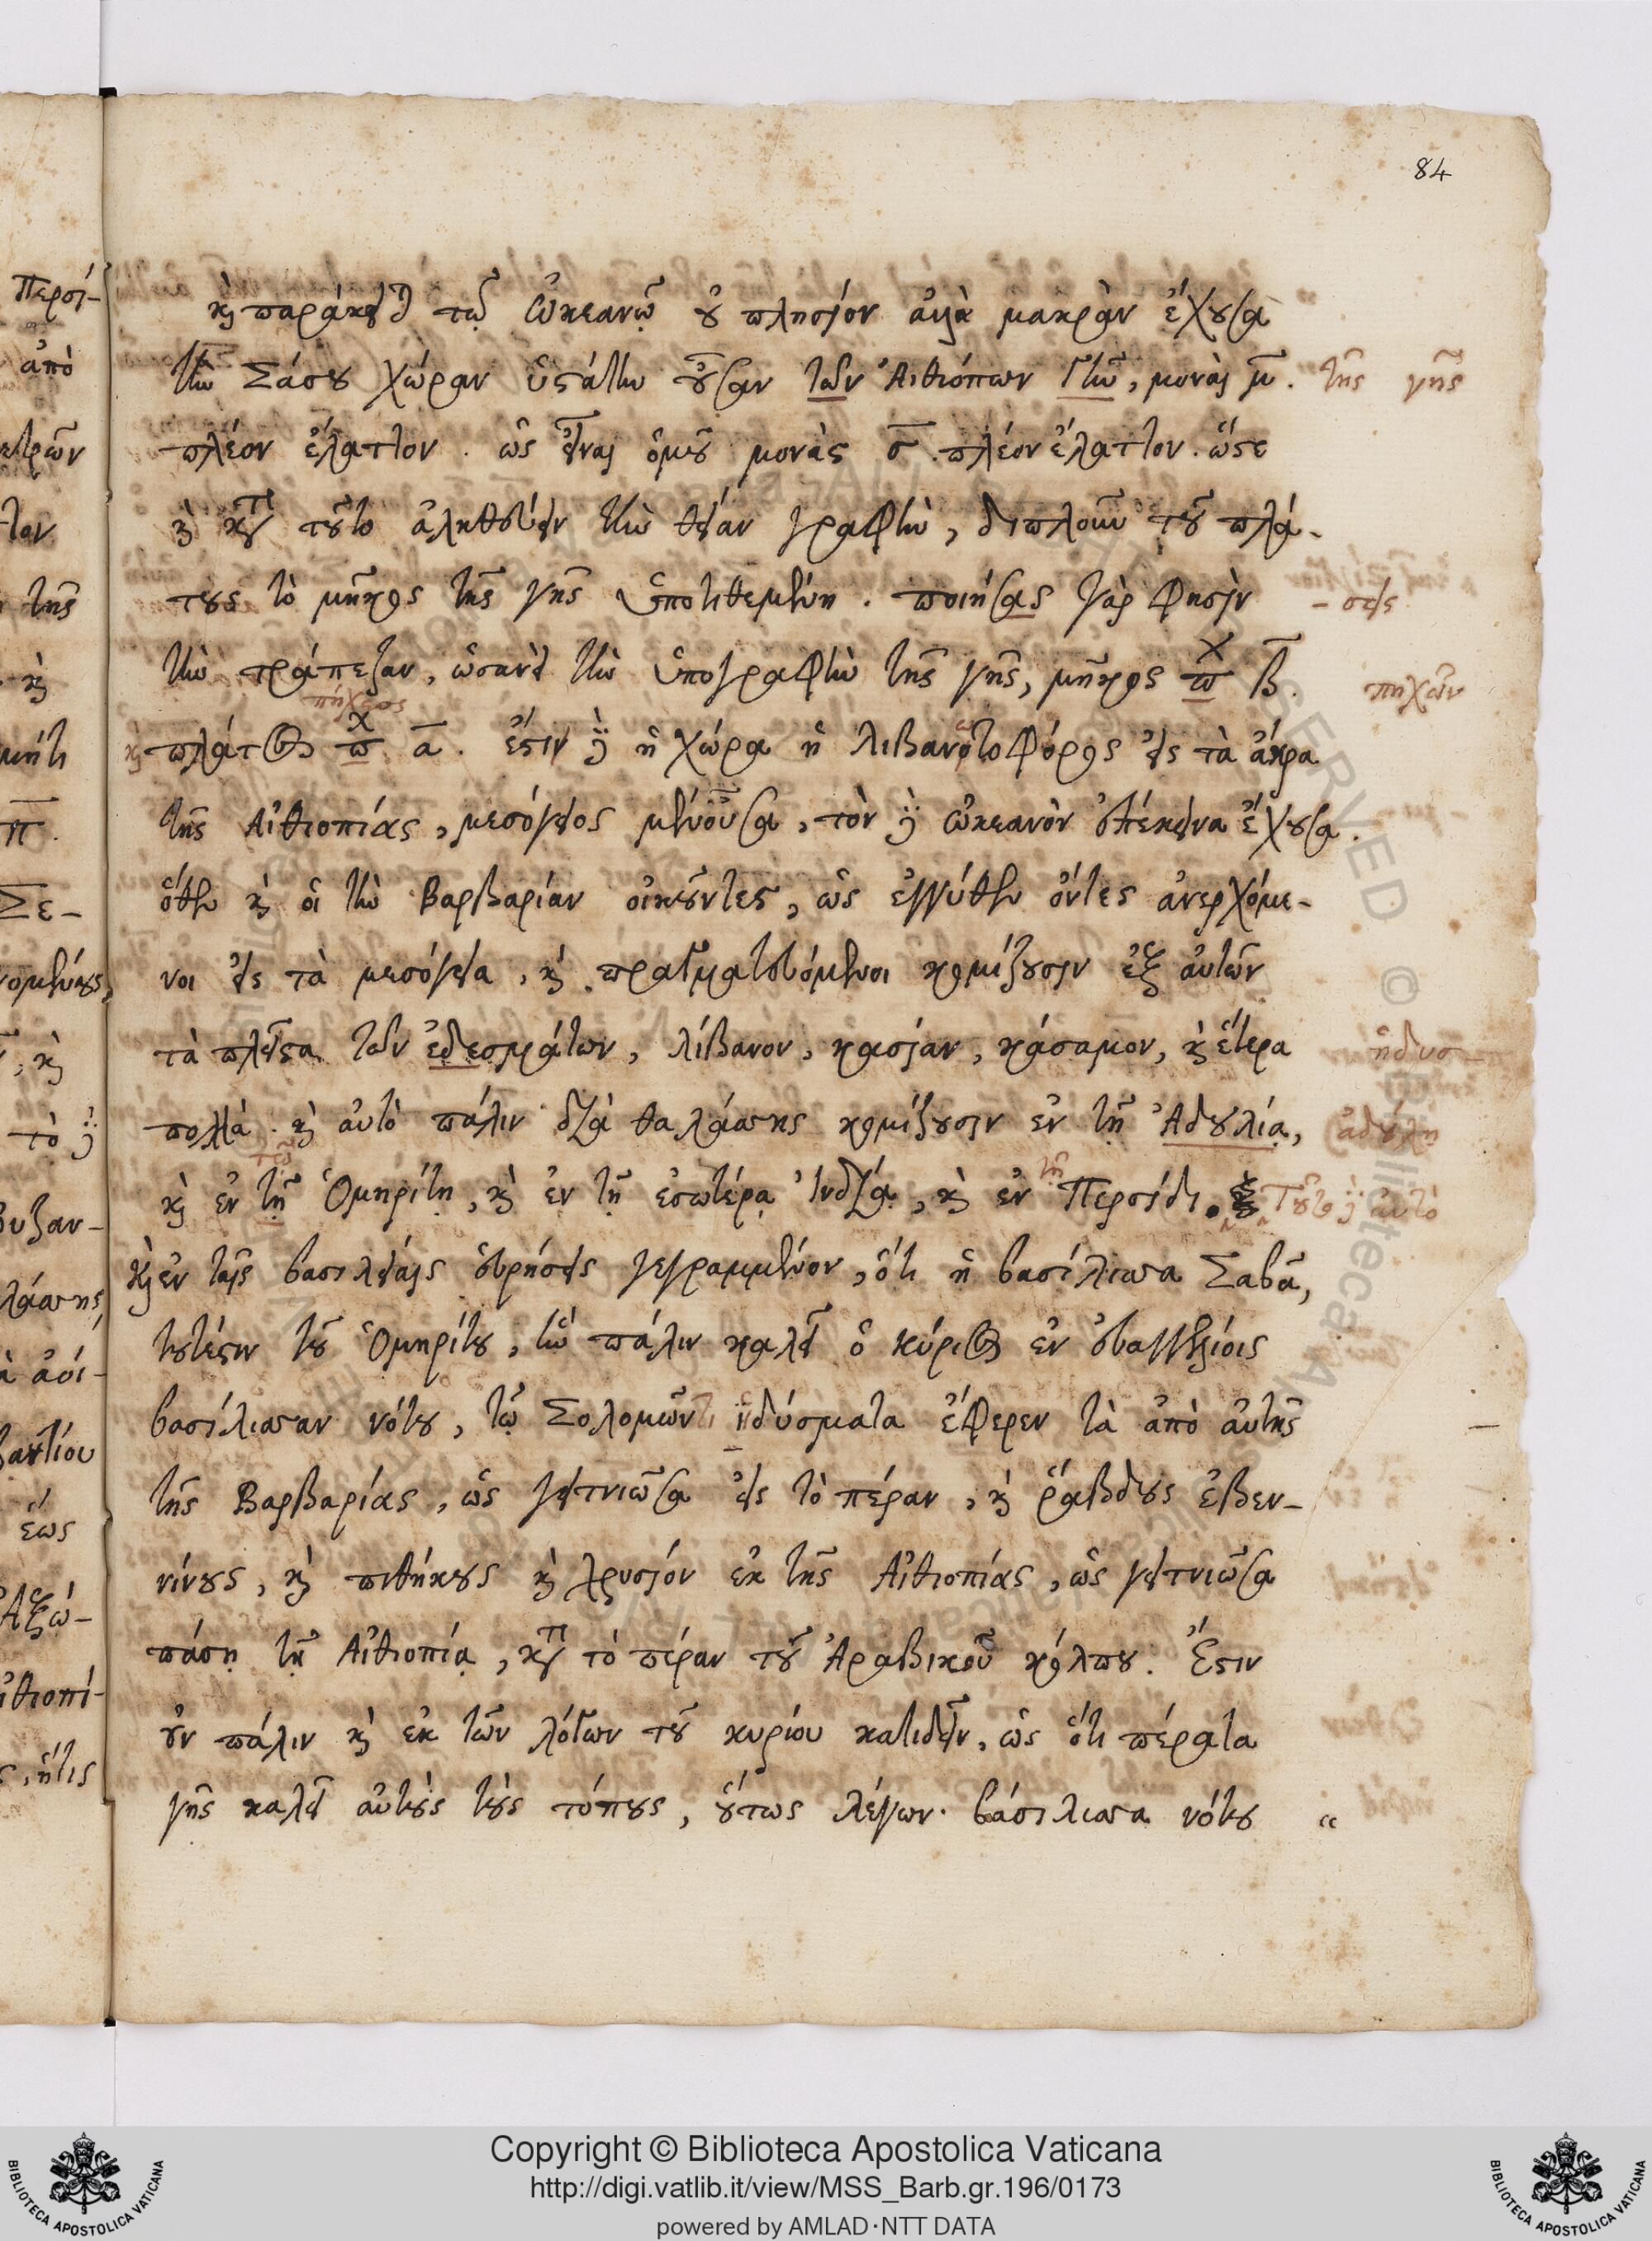 84
καὶ παράκειται τῷ ὠκεανῷ οὐ πλησίον ἀλλὰ μακρὰν ἔχουσα
τὴν Σάσου χώραν ὑστάτην οὖσαν τῶν Αἰθιόπων γῆν, μονὰς μ̅. τῆς γῆς
πλέον ἔλαττον. ὡς εἶναι ὁμοῦ μονὰς σ̅. πλέον ἔλαττον. ὥστε
καὶ κατὰ τοῦτο ἀληθεύειν τὴν θείαν γραφὴν, διπλοῦν τοῦ πλά-
τους τὸ μῆκος τῆς γῆς ὑποτιθεμένη. ποιήσας γὰρ φησὶν -σεις
τὴν τράπεζαν, ὡσανεὶ τὴν ὑπογραφὴν τῆς γῆς, μῆκος πχ β̅. πηχῶν
πήχεος
καὶ πλάτος πχ α̅. ἔστιν δὲ ἡ χώρα ἡ λιβανοτοφόρος εἰς τὰ ἄκρα
τῆς Αἰθιοπίας, μεσόγειος μὲν οὖσα, τὸν δὲ ὠκεανὸν ἐπέκεινα ἔχουσα.
ὅθεν καὶ οἱ τὴν Βαρβαρίαν οἰκοῦντες, ὡς ἐγγύθεν ὄντες ἀνερχόμε-
νοι εἰς τὰ μεσόγεια, καὶ πραγματευόμενοι κομίζουσιν ἐξ αὐτῶν
τὰ πλεῖστα τῶν ἐδεσμάτων, λίβανον, κασίαν, κάσαμον, καὶ ἕτερα ἡδυσ-
πολλά. καὶ αὐτὸ πάλιν διὰ θαλάσσης κομίζουσιν ἐν τῇ Ἀδουλίᾳ, ἀδούλῃ
τῷ τῇ
καὶ ἐν τῇ Ὁμηρίτῃ, καὶ ἐν τῇ ἐσωτέρᾳ Ἰνδίᾳ, καὶ ἐν Περσίδι. Τοῦτο δὲ αὐτὸ
καὶ ἐν ταῖς βασιλείαις εὑρήσεις γεγραμμένον, ὅτι ἡ βασίλισσα Σαβᾶ,
τουτέστιν τοῦ Ὁμηρίτου, ἣν πάλιν καλεῖ ὁ κύριος ἐν εὐαγγελίοις
βασίλισσαν νότου, τῷ Σολομῶντι ἡδύσματα ἔφερεν τὰ ἀπὸ αὐτῆς
τῆς Βαρβαρίας, ὡς γειτνιῶσα εἰς τὸ πέραν, καὶ ῥάβδους ἐβεν-
νίνους, καὶ πιθήκους καὶ χρυσίον ἐκ τῆς Αἰθιοπίας, ὡς γειτνιῶσα
πάσῃ τῇ Αἰθιοπίᾳ, κατὰ τὸ πέραν τοῦ Ἀραβικοῦ κόλπου. Ἔστιν
οὖν πάλιν καὶ ἐκ τῶν λόγων τοῦ κυρίου κατιδεῖν, ὡς ὅτι πέρατα
γῆς καλεῖ αὐτοὺς τοὺς τόπους, οὕτως λέγων· βασίλισσα νότου "
Περσί-
ἀπὸ
ετρῶν
τον
τῆς
καὶ
μήτι
π̅.
Σε-
νομένους,
καὶ
τὸ δὲ
βυζαν-
λάσσης,
ἕως
Ἀξώ-
ἰθιοπί-
ς, ἥτις
Copyright © Biblioteca Apostolica Vaticana
http://digi.vatlib.it/view/MSS_Barb.gr.196/0173
powered by AMLAD·NTT DATA
BIBLIOTECA APOSTOLICA VATICANA
BIBLIOTECA APOSTOLICA VATICANA